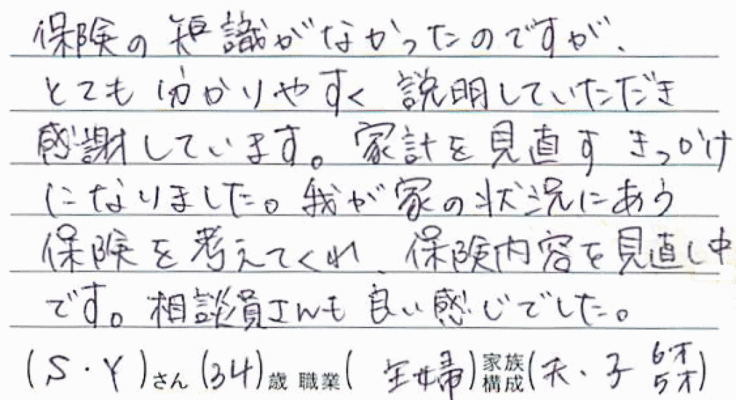 保険の知識がなかったのですが、
とても分かりやすく説明していただき
感謝しています。家計を見直すきっかけ
になりました。我が家の状況にあう
保険を考えてくれ、保険内容を見直し中
です。相談員さんも良い感じでした。
(S・Y)さん(34)歳 職業(主婦)家族構成(夫・子 6才 5才)